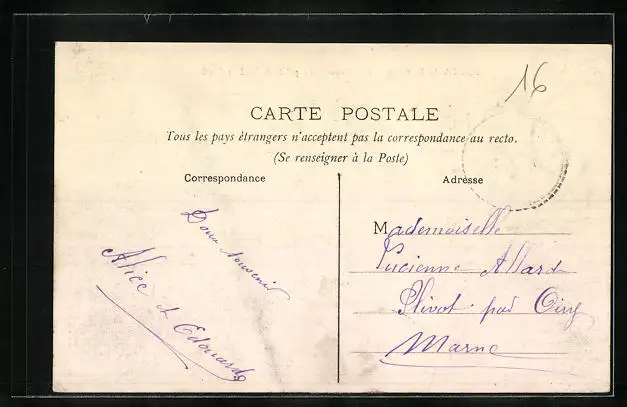 16
CARTE POSTALE
Tous les pays étrangers n'acceptent pas la correspondance au recto.
(Se renseigner à la Poste)
Correspondance
Adresse
Doux souvenir
Alice et Edouard
Mademoiselle
Lucienne Allard
Plivot par Oiry
Marne